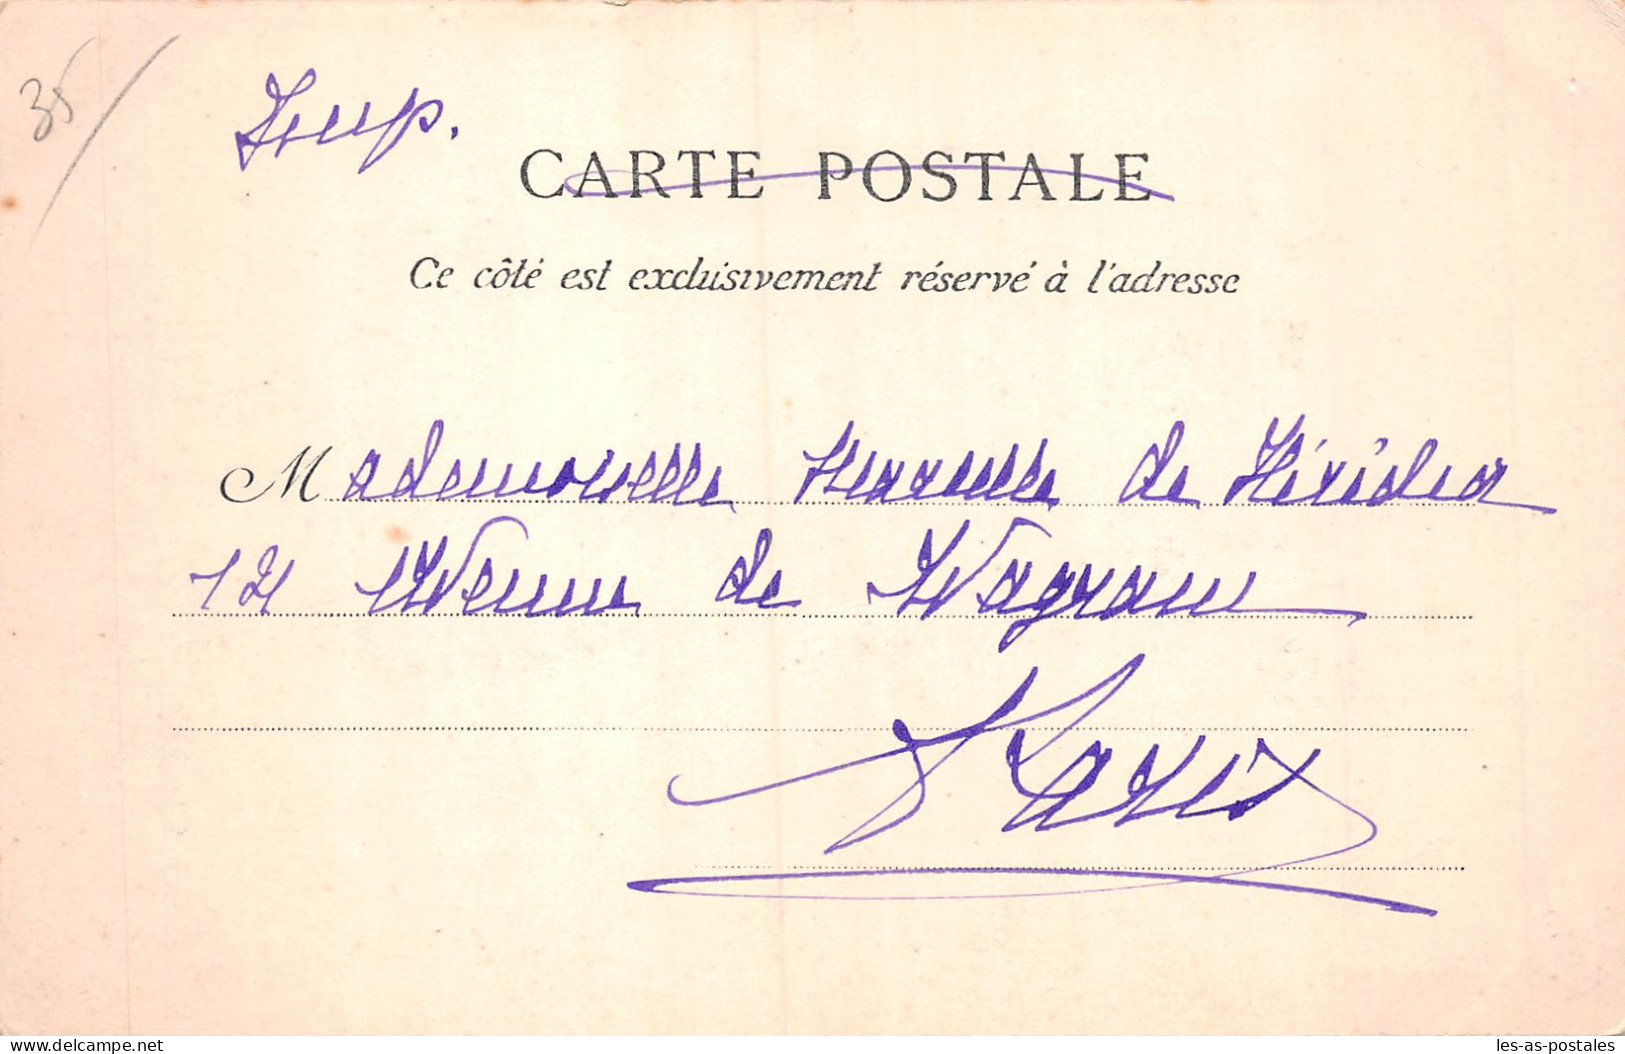 35
Imp.
CARTE POSTALE
Ce côté est exclusivement réservé à l'adresse
Mademoiselle de Hérédia
121 Avenue de Wagram
Paris
delcampe.net
les-as-postales